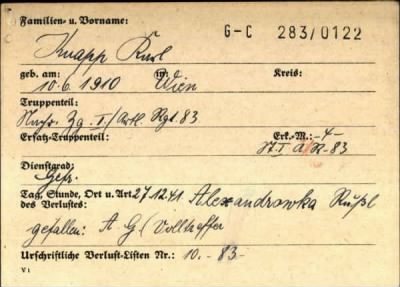 Familien- u. Vorname:
G-C 283/0122
Knapp Karl
geb. am: in: Kreis:
10.6.1910 Wien
Truppenteil:
Nachr. Zg. I./Artl. Rgt. 83
Ersatz-Truppenteil: Erk.-M.: -4-
St. I A/R-83
Dienstgrad:
Gefr.
Tag, Stunde, Ort u. Art 27.12.41 Alexandrowka Rußl
des Verlustes:
gefallen: A G (Volltreffer
Urschriftliche Verlust-Listen Nr.: 10.-83-
V1